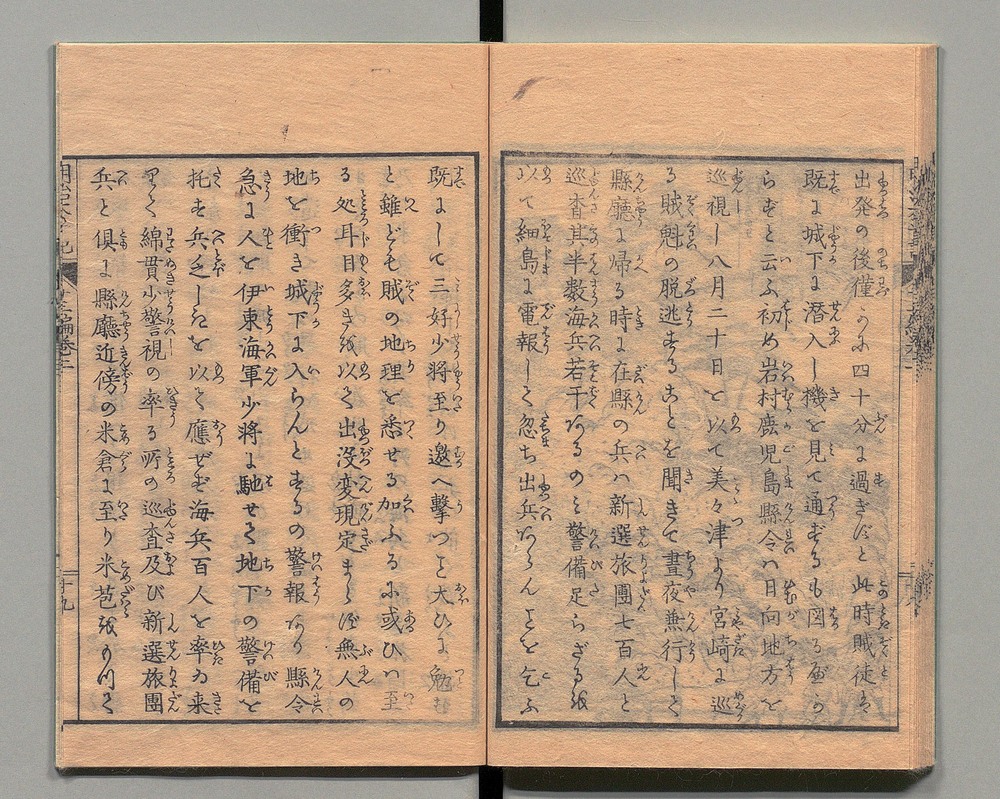 出発の後僅かに四十分に過ぎずと此時賊徒は
既に城下に潜入し機を見て通ずるも図る可か
らずと云ふ初め岩村鹿児島縣令ハ日向地方を
巡視し八月二十日を以て美々津より宮崎に巡
る賊魁の脱逃することを聞きて晝夜兼行して
縣廳に帰る時に在縣の兵ハ新選旅團七百人と
巡査其半数海兵若干あるのミ警備足らざるを
以て細島に電報して忽ち出兵あらんことを乞ふ
既にして三好少将至り邀へ撃つこと大ひに勉む
と雖ども賊の地理を悉せる加ふるに或ひハ至
る処耳目多きを以て出没変現定まらず無人の
地を衝き城下に入らんとするの警報あり縣令
急に人を伊東海軍少将に馳せて地下の警備を
托す兵乏しきを以て應ぜず海兵百人を率ゐ来
りて綿貫少警視の率る所の巡査及び新選旅團
兵と倶に縣廳近傍の米倉に至り米苞をのけて